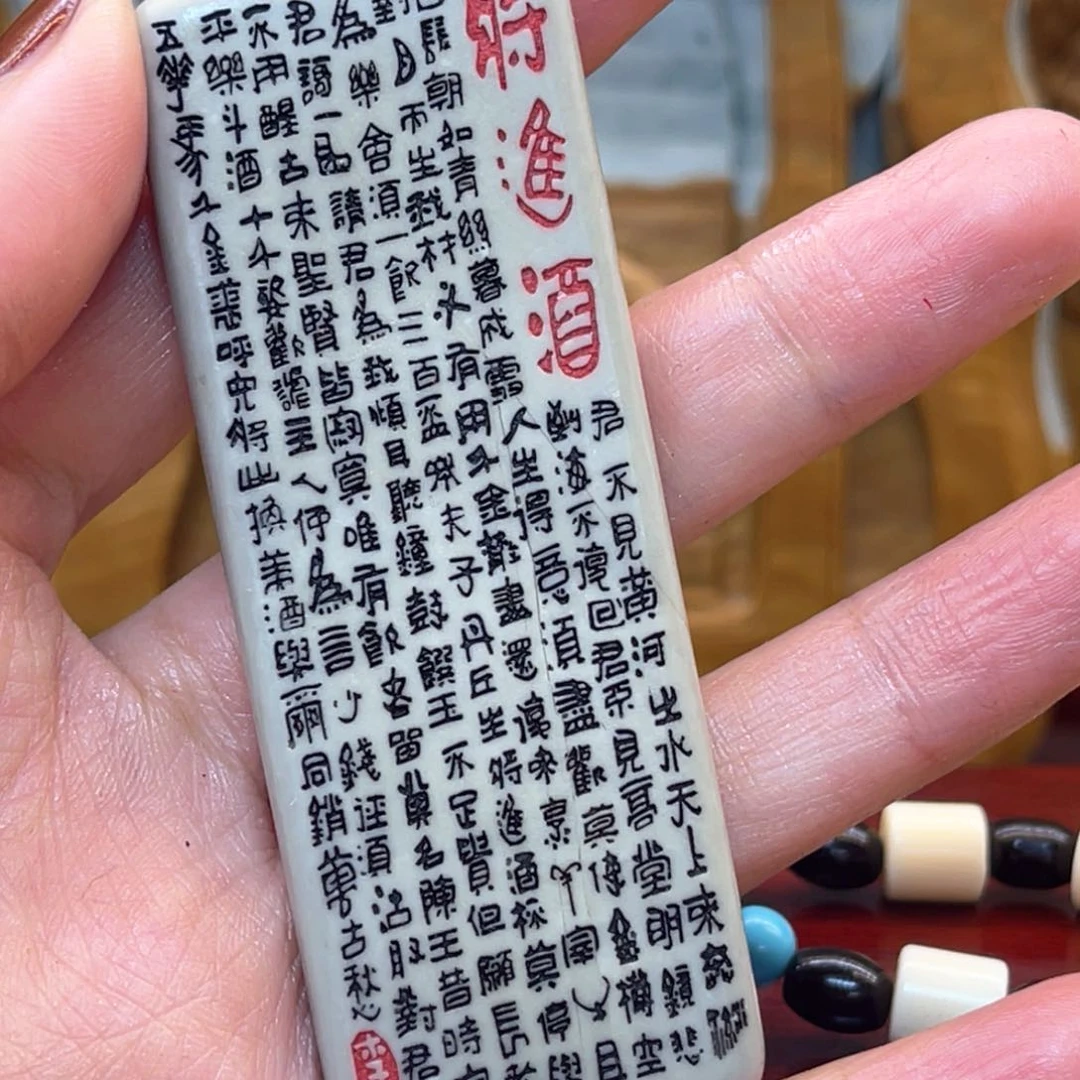 將進酒
君不見黃河之水天上來奔流
到海不復回君不見高堂明鏡悲
髮朝如青絲暮成雪人生得意須盡歡莫使金樽空
月天生我材必有用千金散盡還復來烹羊宰牛且
為樂會須一飲三百盃岑夫子丹丘生將進酒杯莫停與
君謌一曲請君為我傾耳聽鐘鼓饌玉不足貴但願長醉
不用醒古來聖賢皆寂寞唯有飲者留其名陳王昔時宴
平樂斗酒十千恣歡謔主人何為言少錢徑須沽取對君
五花馬千金裘呼兒將出換美酒與爾同銷萬古愁